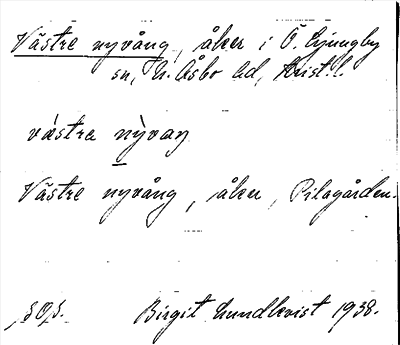 Västre nyvång, åker i Ö. Ljungby
sn, N. Åsbo hd, Krist. l.
västra nỳvaŋ
Västre nyvång, åker, Pilagården.
Birgit Lundkvist 1938.